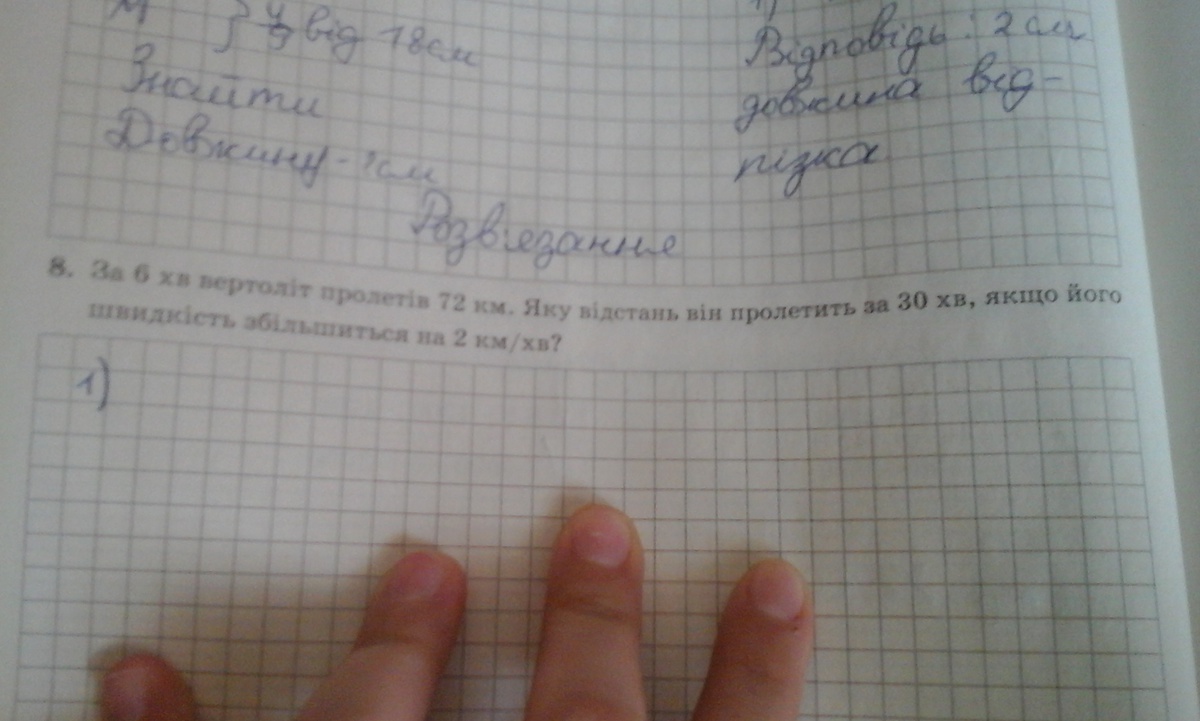 } 4/9 від 18см
Знайти
Довжину - ?см
Відповідь: 2 см
довжина від-
різка
Розв'язання
8. За 6 хв вертоліт пролетів 72 км. Яку відстань він пролетить за 30 хв, якщо його
швидкість збільшиться на 2 км/хв?
1)